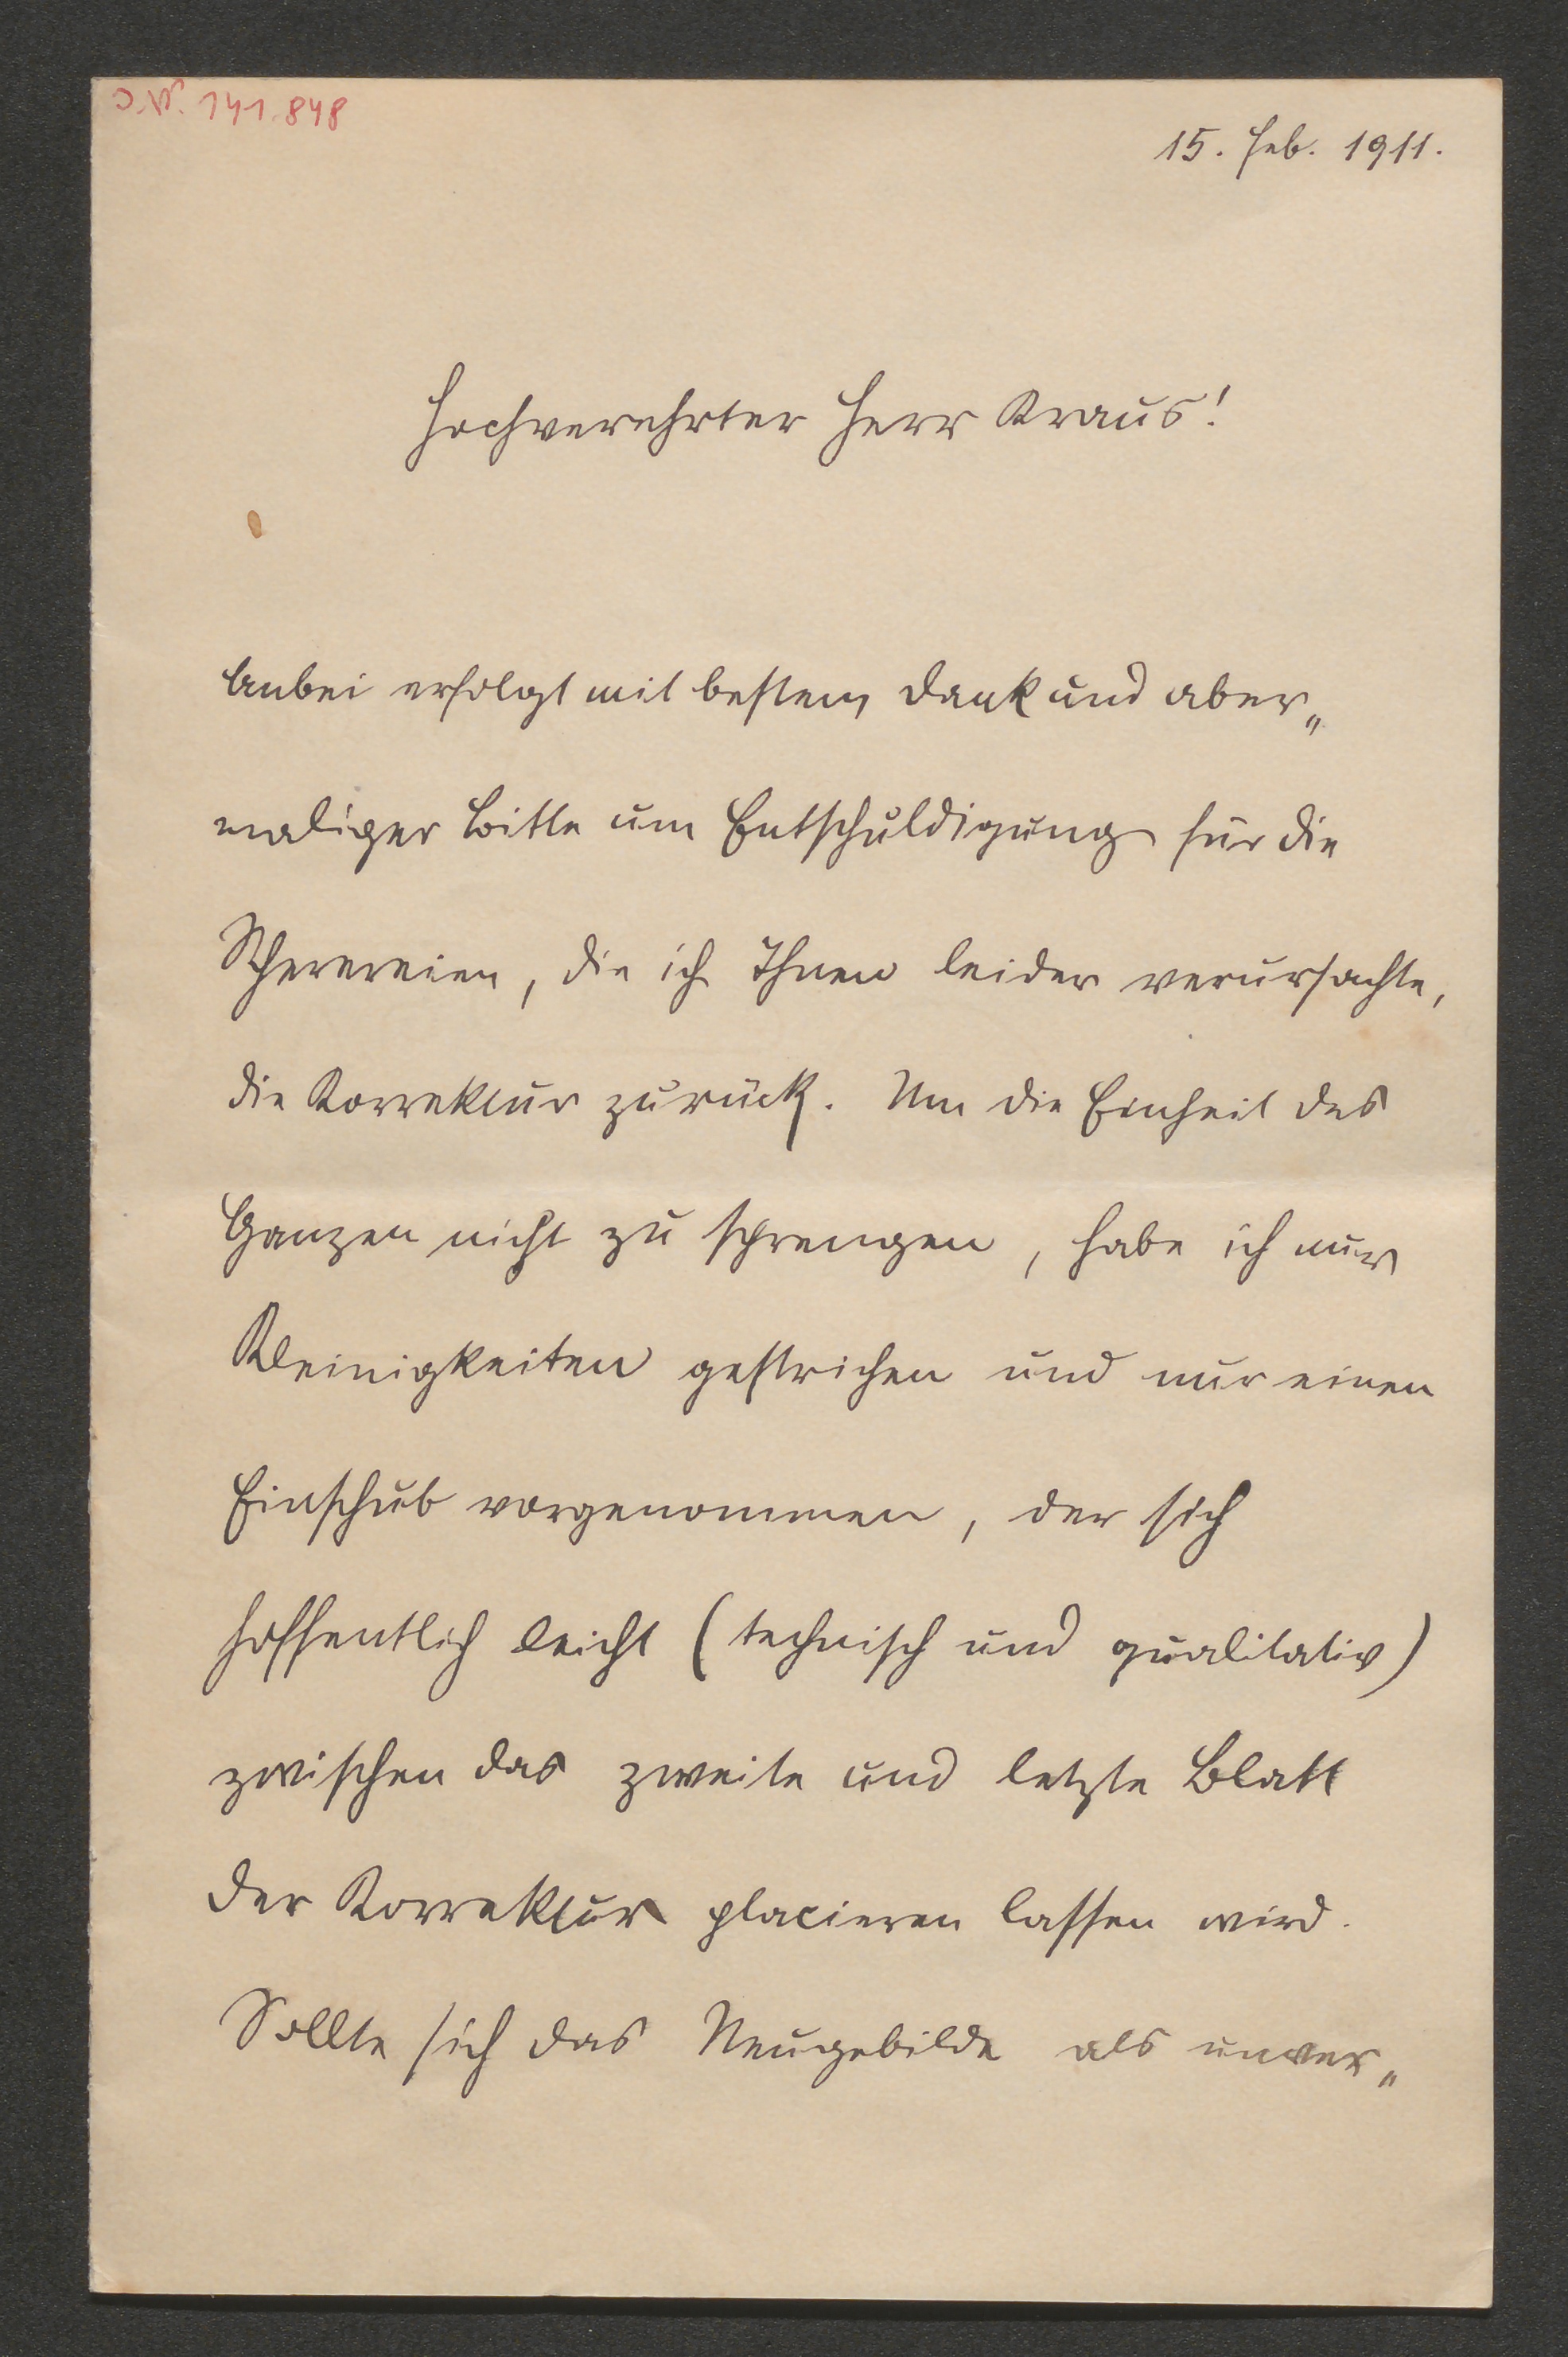 J.N. 141.848
15. Feb. 1911.
Hochverehrter Herr Kraus!
Anbei erfolgt mit bestem Dank und aber„
maliger Bitte um Entschuldigung für die
Scherereien, die ich Ihnen leider verursachte,
die Korrektur zurück. Um die Einheit des
Ganzen nicht zu sprengen, habe ich nur
Kleinigkeiten gestrichen und nur einen
Einschub vorgenommen, der sich
hoffentlich leicht (technisch und qualitativ)
zwischen das zweite und letzte Blatt
der Korrektur placieren lassen wird.
Sollte sich das Neugebilde als unver„